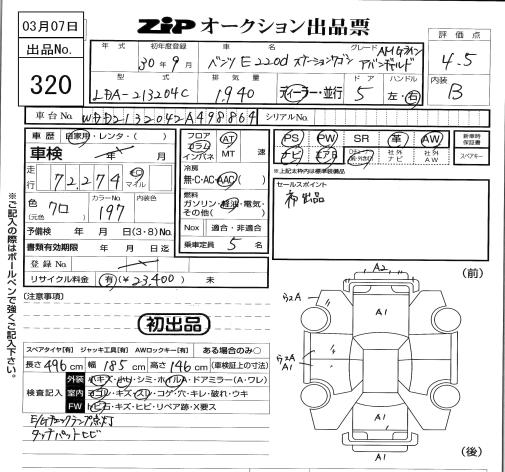 03月07日
ZiP オークション出品票
出品No.
320
年式
初年度登録
30年9月
車名
ベンツ E220d ステーションワゴン
グレード
AMGライン
アバンギャルド
評価点
4.5
型式
LDA-213204C
排気量
1,940
ディーラー・並行
ドア
5
ハンドル
左・右
内装
B
車台No.
WDD2132042A498864
シリアルNo.
車歴
自家用・レンタ・( )
車検
年 月
走行
72,274
km
マイル
色
(元色)
クロ
カラーNo.
197
内装色
予備検 年 月 日(3・8)No.
書類有効期限 年 月 日迄
登録No.
リサイクル料金 有(¥23,400) 未
フロア
コラム
インパネ
AT
MT
速
冷房
無・C・AC・AAC( )
燃料
ガソリン・軽油・電気・
その他( )
Nox 適合・非適合
乗車定員 5 名
PS PW SR 革 AW
ナビ エアB 社外ナビ 社外AW
新車時保証書
スペアキー
*上記太枠内は標準装備品
セールスポイント
初出品
※ご記入の際はボールペンで強くご記入下さい。
(注意事項)
初出品
スペアタイヤ[有] ジャッキ工具[有] AWロックキー[有] ある場合のみ○
長さ496cm 幅185cm 高さ146cm (車検証上の寸法)
検査記入
外装 小キズ・小凹・シミ・ホイルA・ドアミラー(A・ワレ)
室内 ヨゴレ・キズ・スレ・コゲ・穴・キレ・破れ・ウキ
FW トビ石・キズ・ヒビ・リペア跡・X要ス
E/Gチェックランプ点灯
タッチパットヒビ
(前)
A2
A1
ラ2A
A1
ラ2A
A1
A1
(後)